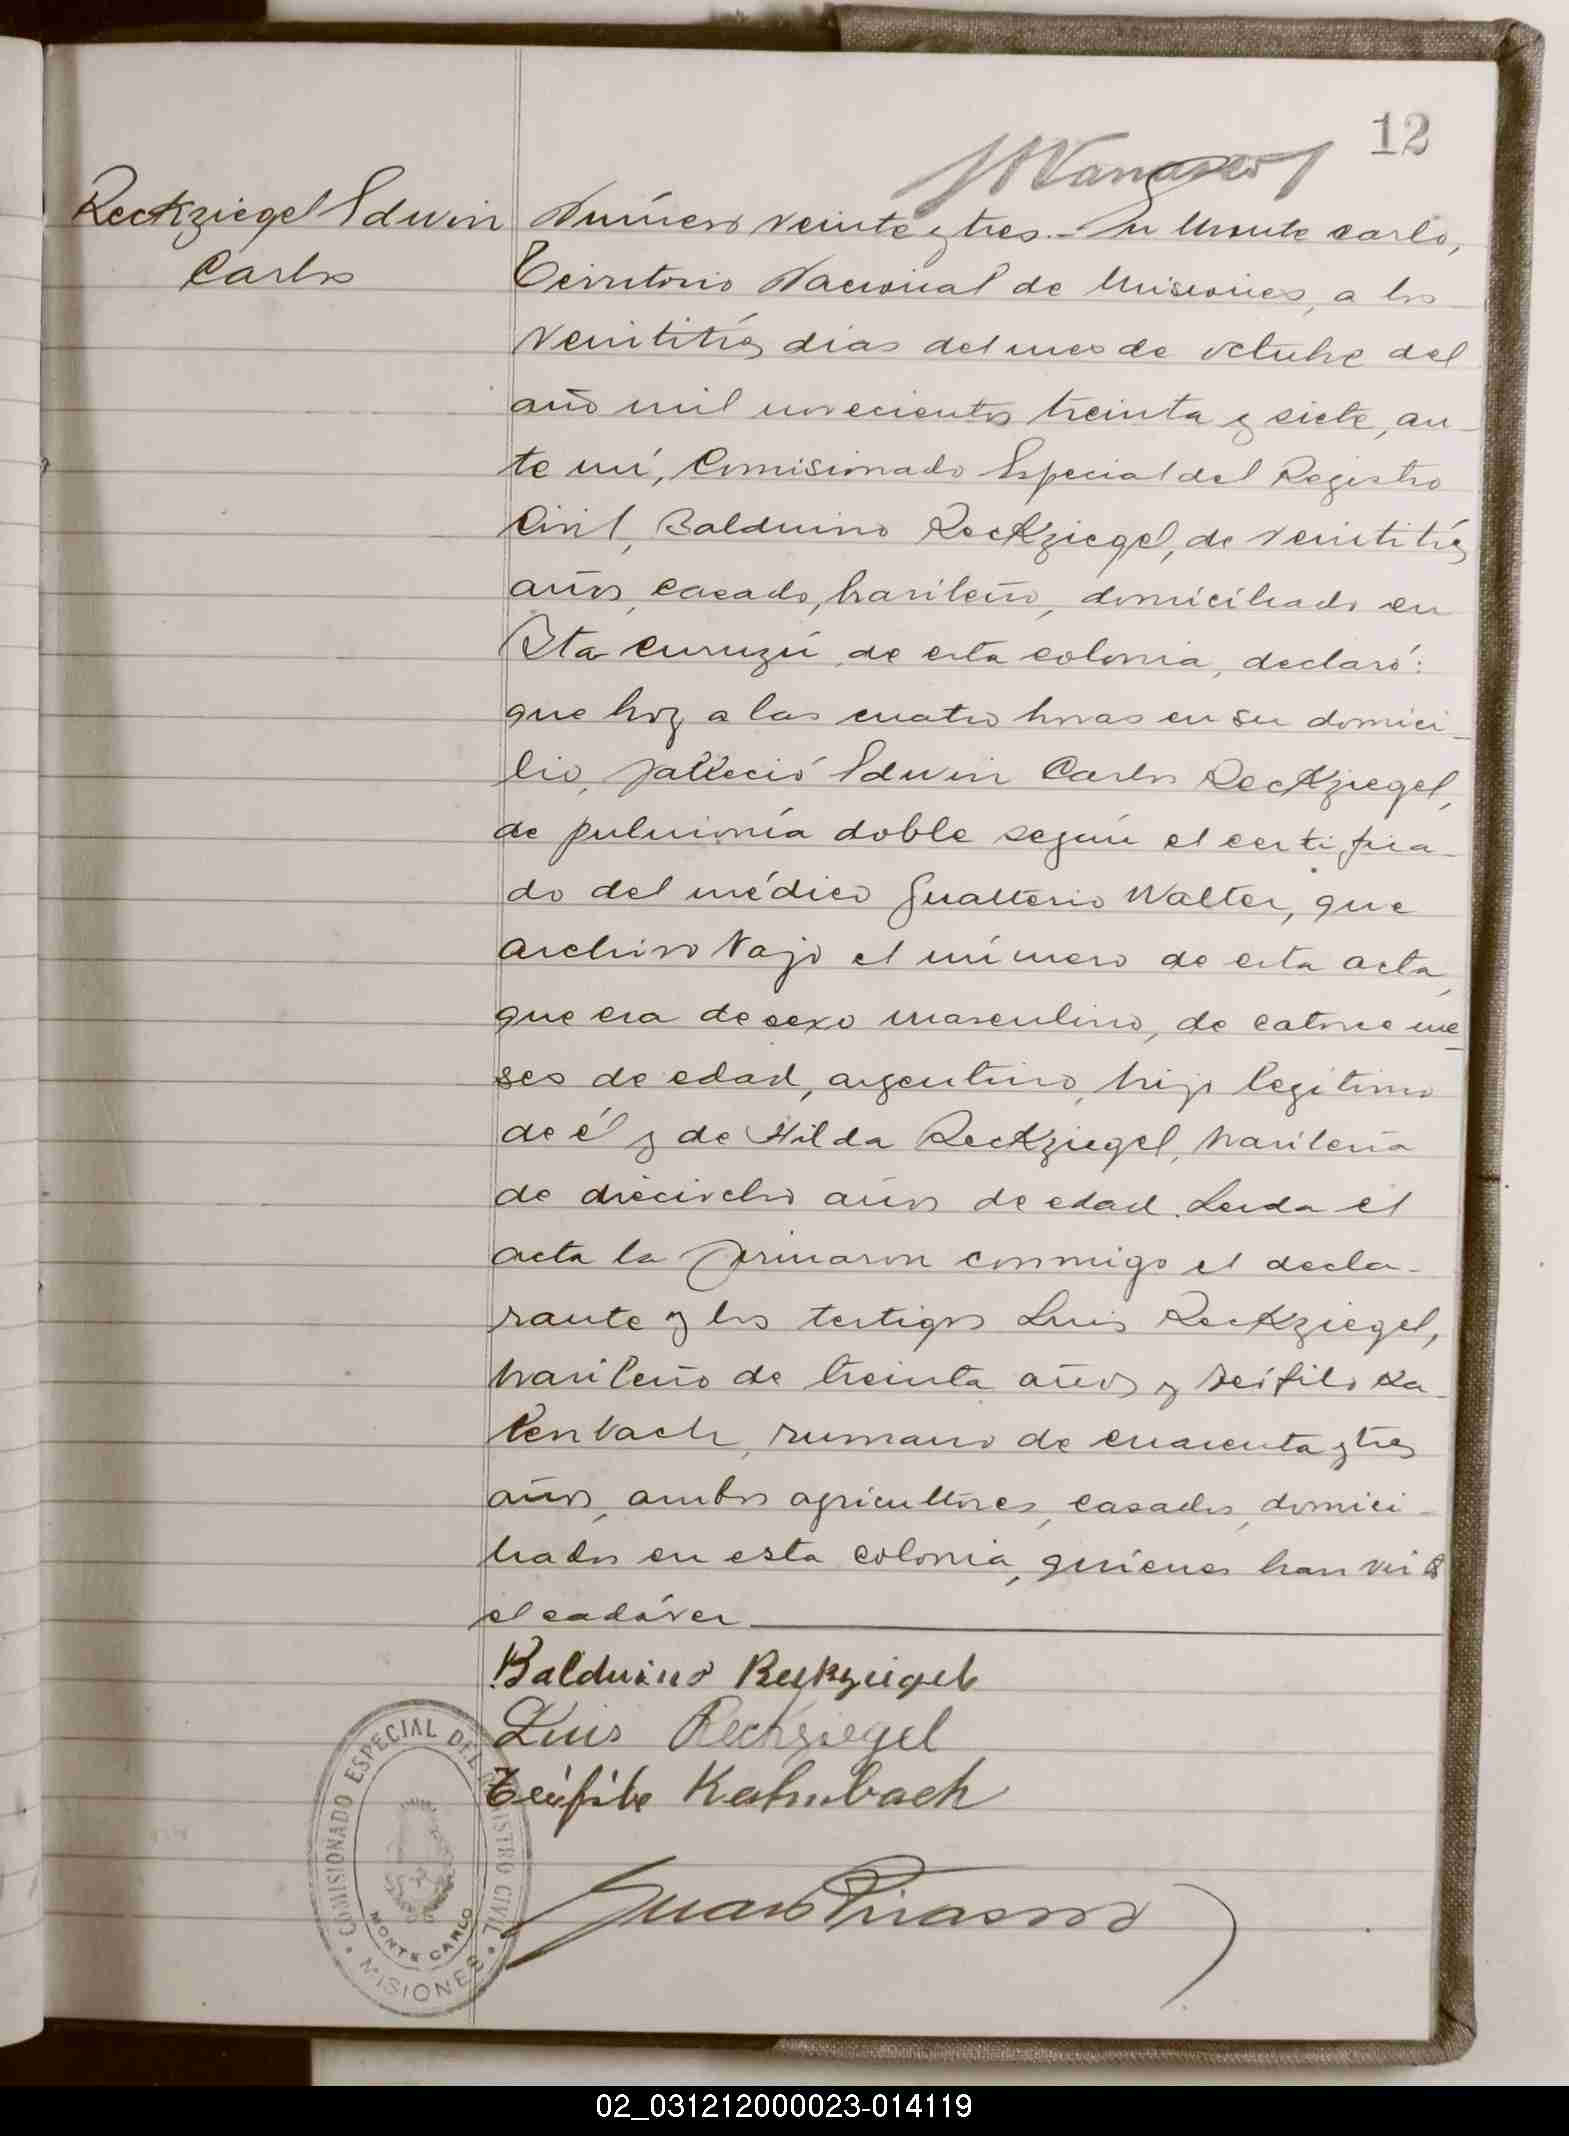 12
Reckziegel Edwin
Carlos
Número veinte y tres.- En Monte Carlo,
Territorio Nacional de Misiones, a los
veintitrés días del mes de octubre del
año mil novecientos treinta y siete, an-
te mí, Comisionado Especial del Registro
Civil, Balduino Reckziegel, de veintitrés
años, casado, brasileño, domiciliado en
Bta Curuzú, de esta colonia, declaró:
que hoy a las cuatro horas en su domici-
lio, falleció Edwin Carlos Reckziegel,
de pulmonía doble según el certifica-
do del médico Gualterio Walter, que
archivo bajo el número de esta acta,
que era de sexo masculino, de catorce me-
ses de edad, argentino, hijo legítimo
de él y de Hilda Reckziegel, brasileña
de dieciocho años de edad. Leida el
acta la firmaron conmigo el decla-
rante y los testigos Luis Reckziegel,
brasileño de treinta años y Teófilo Ka-
lenbach, rumano de cuarenta y tres
años, ambos agricultores, casados, domici-
liados en esta colonia, quienes han visto
el cadáver
Balduino Reckziegel
Luis Reckziegel
Teófilo
COMISIONADO ESPECIAL DEL REGISTRO CIVIL
MONTE CARLO
MISIONES
02_031212000023-014119